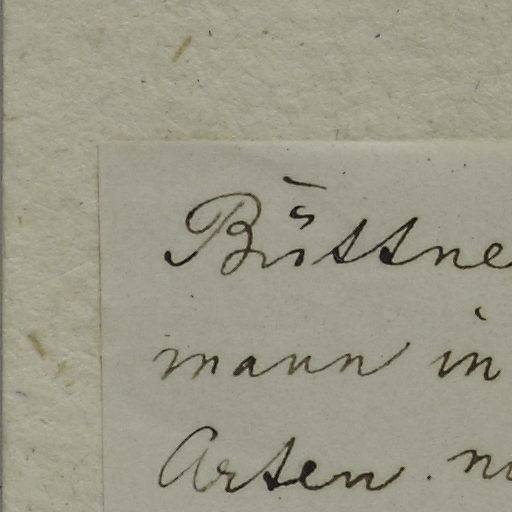 Büttne
mann in
Arten. n